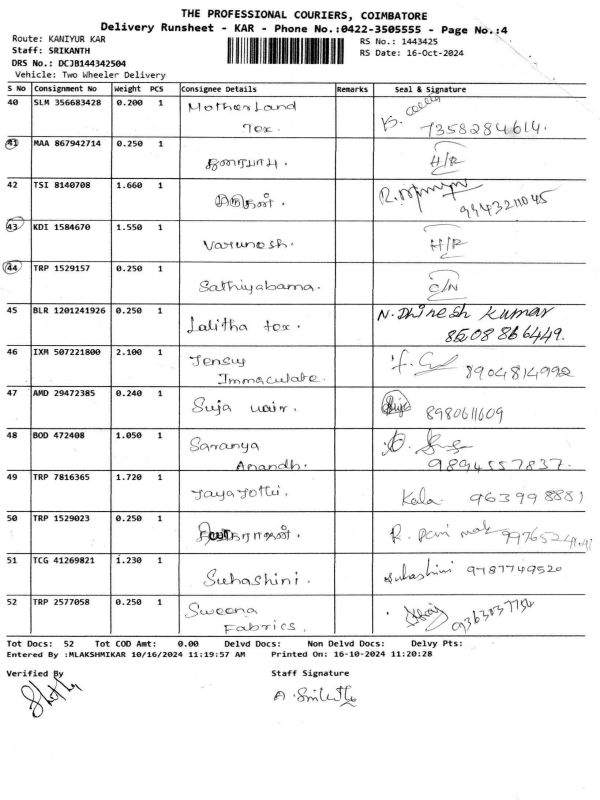 THE PROFESSIONAL COURIERS, COIMBATORE
Delivery Runsheet - KAR - Phone No.:0422-3505555 - Page No.:4
Route: KANIYUR KAR
RS No.: 1443425
Staff: SRIKANTH
RS Date: 16-Oct-2024
DRS No.: DCJB144342504
Vehicle: Two Wheeler Delivery
S No Consignment No Weight PCS Consignee Details Remarks Seal & Signature
40 SLM 356683428 0.200 1 MotherLand
Tex. 7358284614.
41 MAA 867942714 0.250 1 H/R
42 TSI 8140708 1.660 1
9943211045
43 KDI 1584670 1.550 1 Varunesh. H/R
44 TRP 1529157 0.250 1 Sathiyabama. C/N
45 BLR 1201241926 0.250 1 Lalitha tex. N. Dhinesh Kumar
8508866449.
46 IXM 507221800 2.100 1 Jensy
Immaculate. 8904814992
47 AMD 29472385 0.240 1 Suja 8980611609
48 BOD 472408 1.050 1 Saranya
Anandh. 9894557837.
49 TRP 7816365 1.720 1 Kala. 963998881
50 TRP 1529023 0.250 1 R.
51 TCG 41269821 1.230 1 Suhashini. Suhashini 9787749520
52 TRP 2577058 0.250 1 Sweena
Fabrics.
Tot Docs: 52 Tot COD Amt: 0.00 Delvd Docs: Non Delvd Docs: Delvy Pts:
Entered By :MLAKSHMIKAR 10/16/2024 11:19:57 AM Printed On: 16-10-2024 11:20:28
Verified By Staff Signature